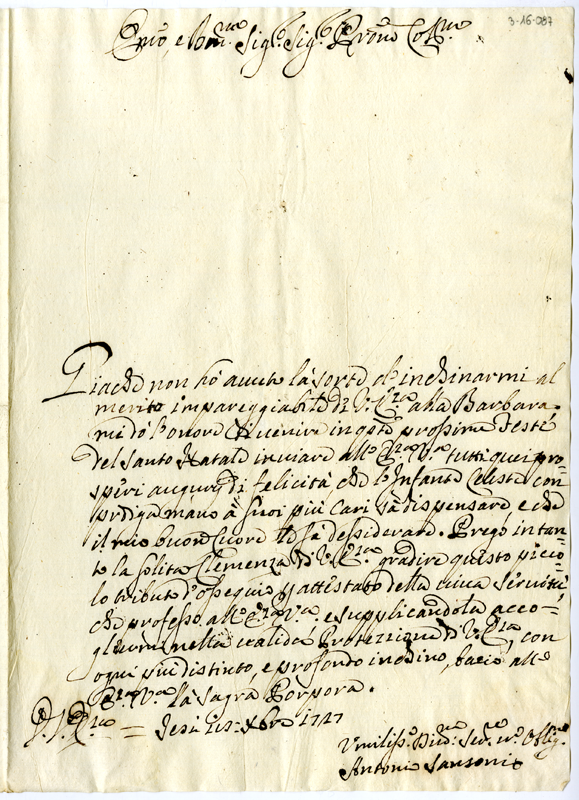 3-16-087
Em̃o, e Rm̃o Sig.r Sig.r Pr̃one Col.mo
Giache non hò auuto la sorte di inchinarmi al
merito impareggiabile di V. E.za alla Barbara
mi dò l'onore di uenire in q.ste prossime Feste
del Santo Natale inuiare all' E.za V.ra tutti quei pro=
speri augurij di felicità che lo Infante Celeste con
prodiga mano à suoi più Cari sà dispensare, e che
il mio buon Cuore le sà dessiderare. Prego intan=
to la solita Clemenza di V. E.za gradire questo picco=
lo tributo d'ossequio p attestato della uiua seruitù
che professo all' E.za V.ra e supplicandola acco=
gliermi nella ualida Protezzione di V. E.za, con
ogni più distinto, e profondo inchino, bacio all'
E.za V.ra la Sagra Porpora.
Jesi 1727
Vmiliss.o Seru.re Oblig.
Antonio Sansoni